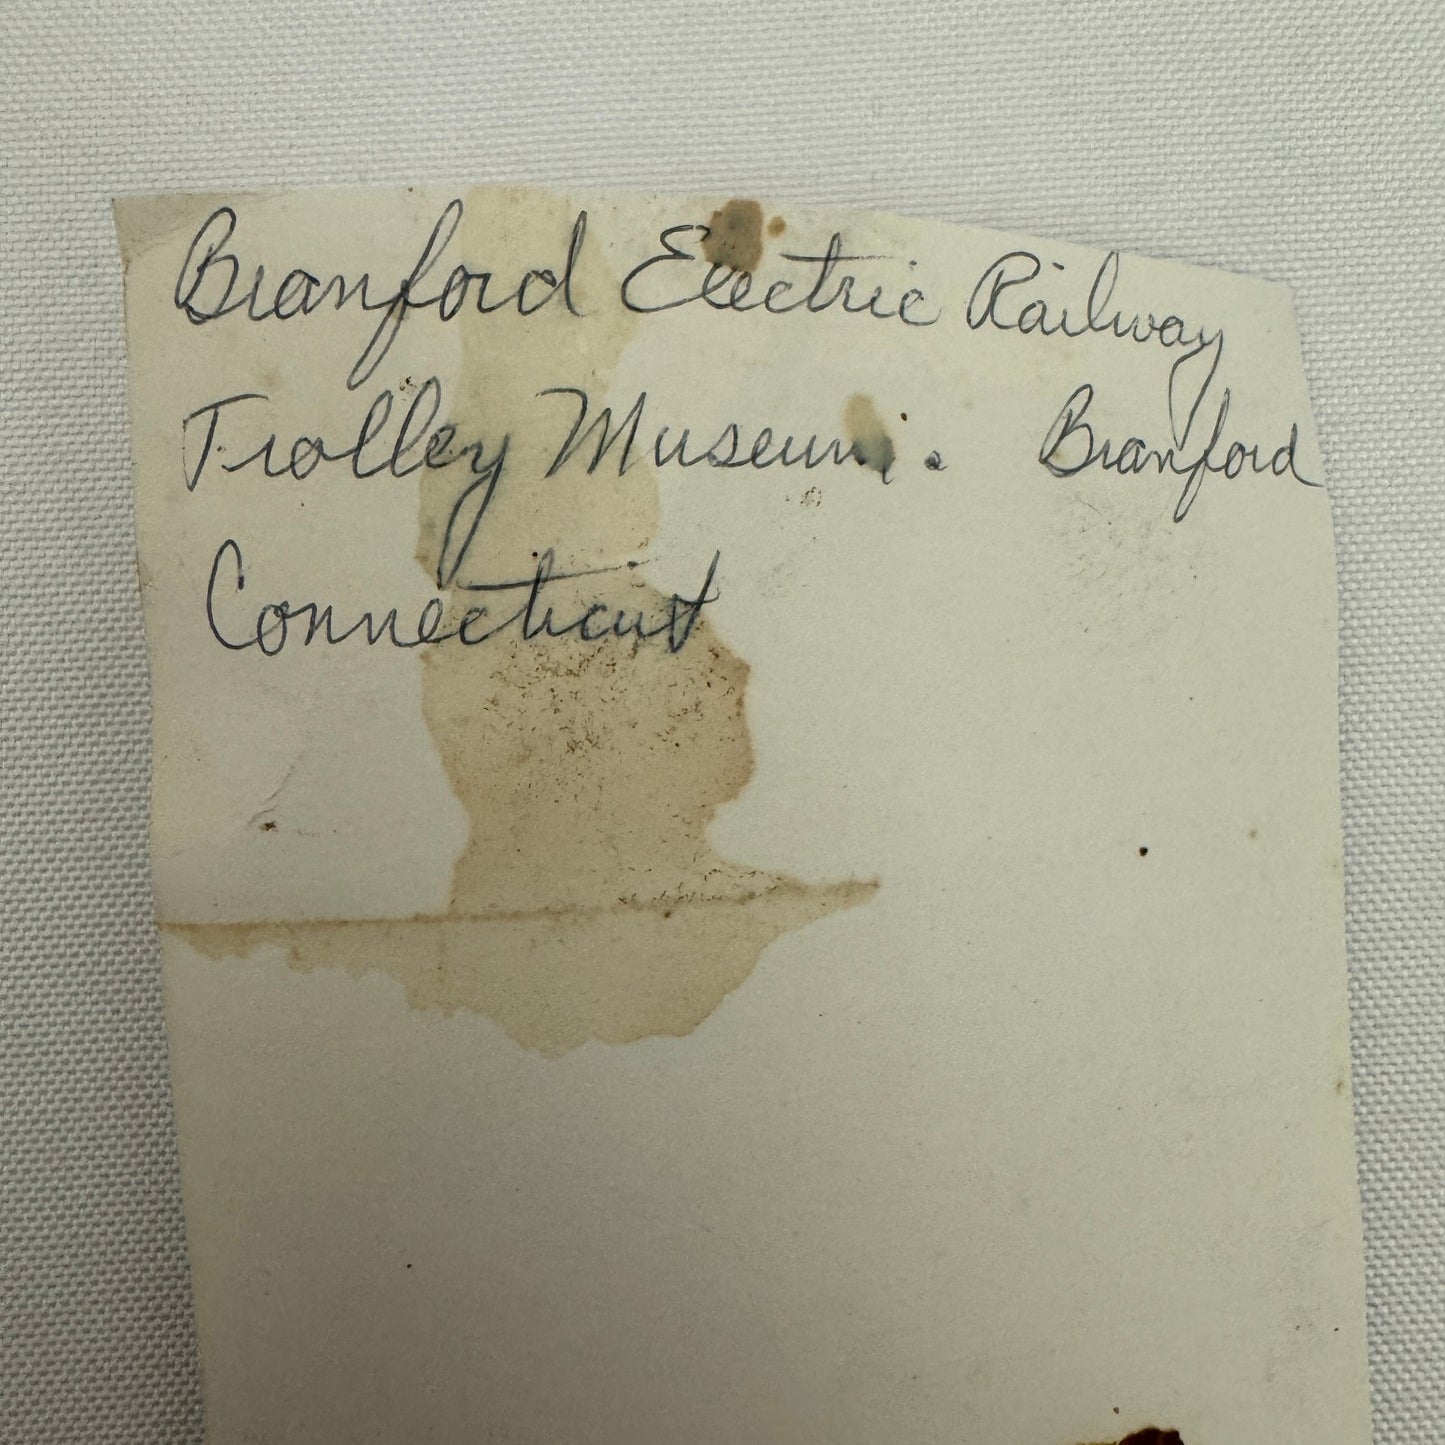 Branford Electric Railway
Trolley Museum. Branford
Connecticut